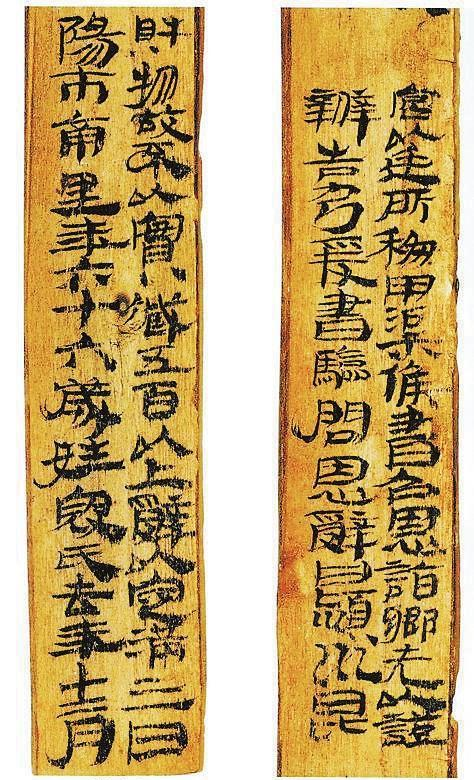 宮以廷所移甲渠候書召恩詣鄉先以證
辨告乃爰書驗問恩辭曰潁川昆
財物故不以實臧五百以上辭以定滿三日
陽市南里年六十六歲姓寇氏去年十二月